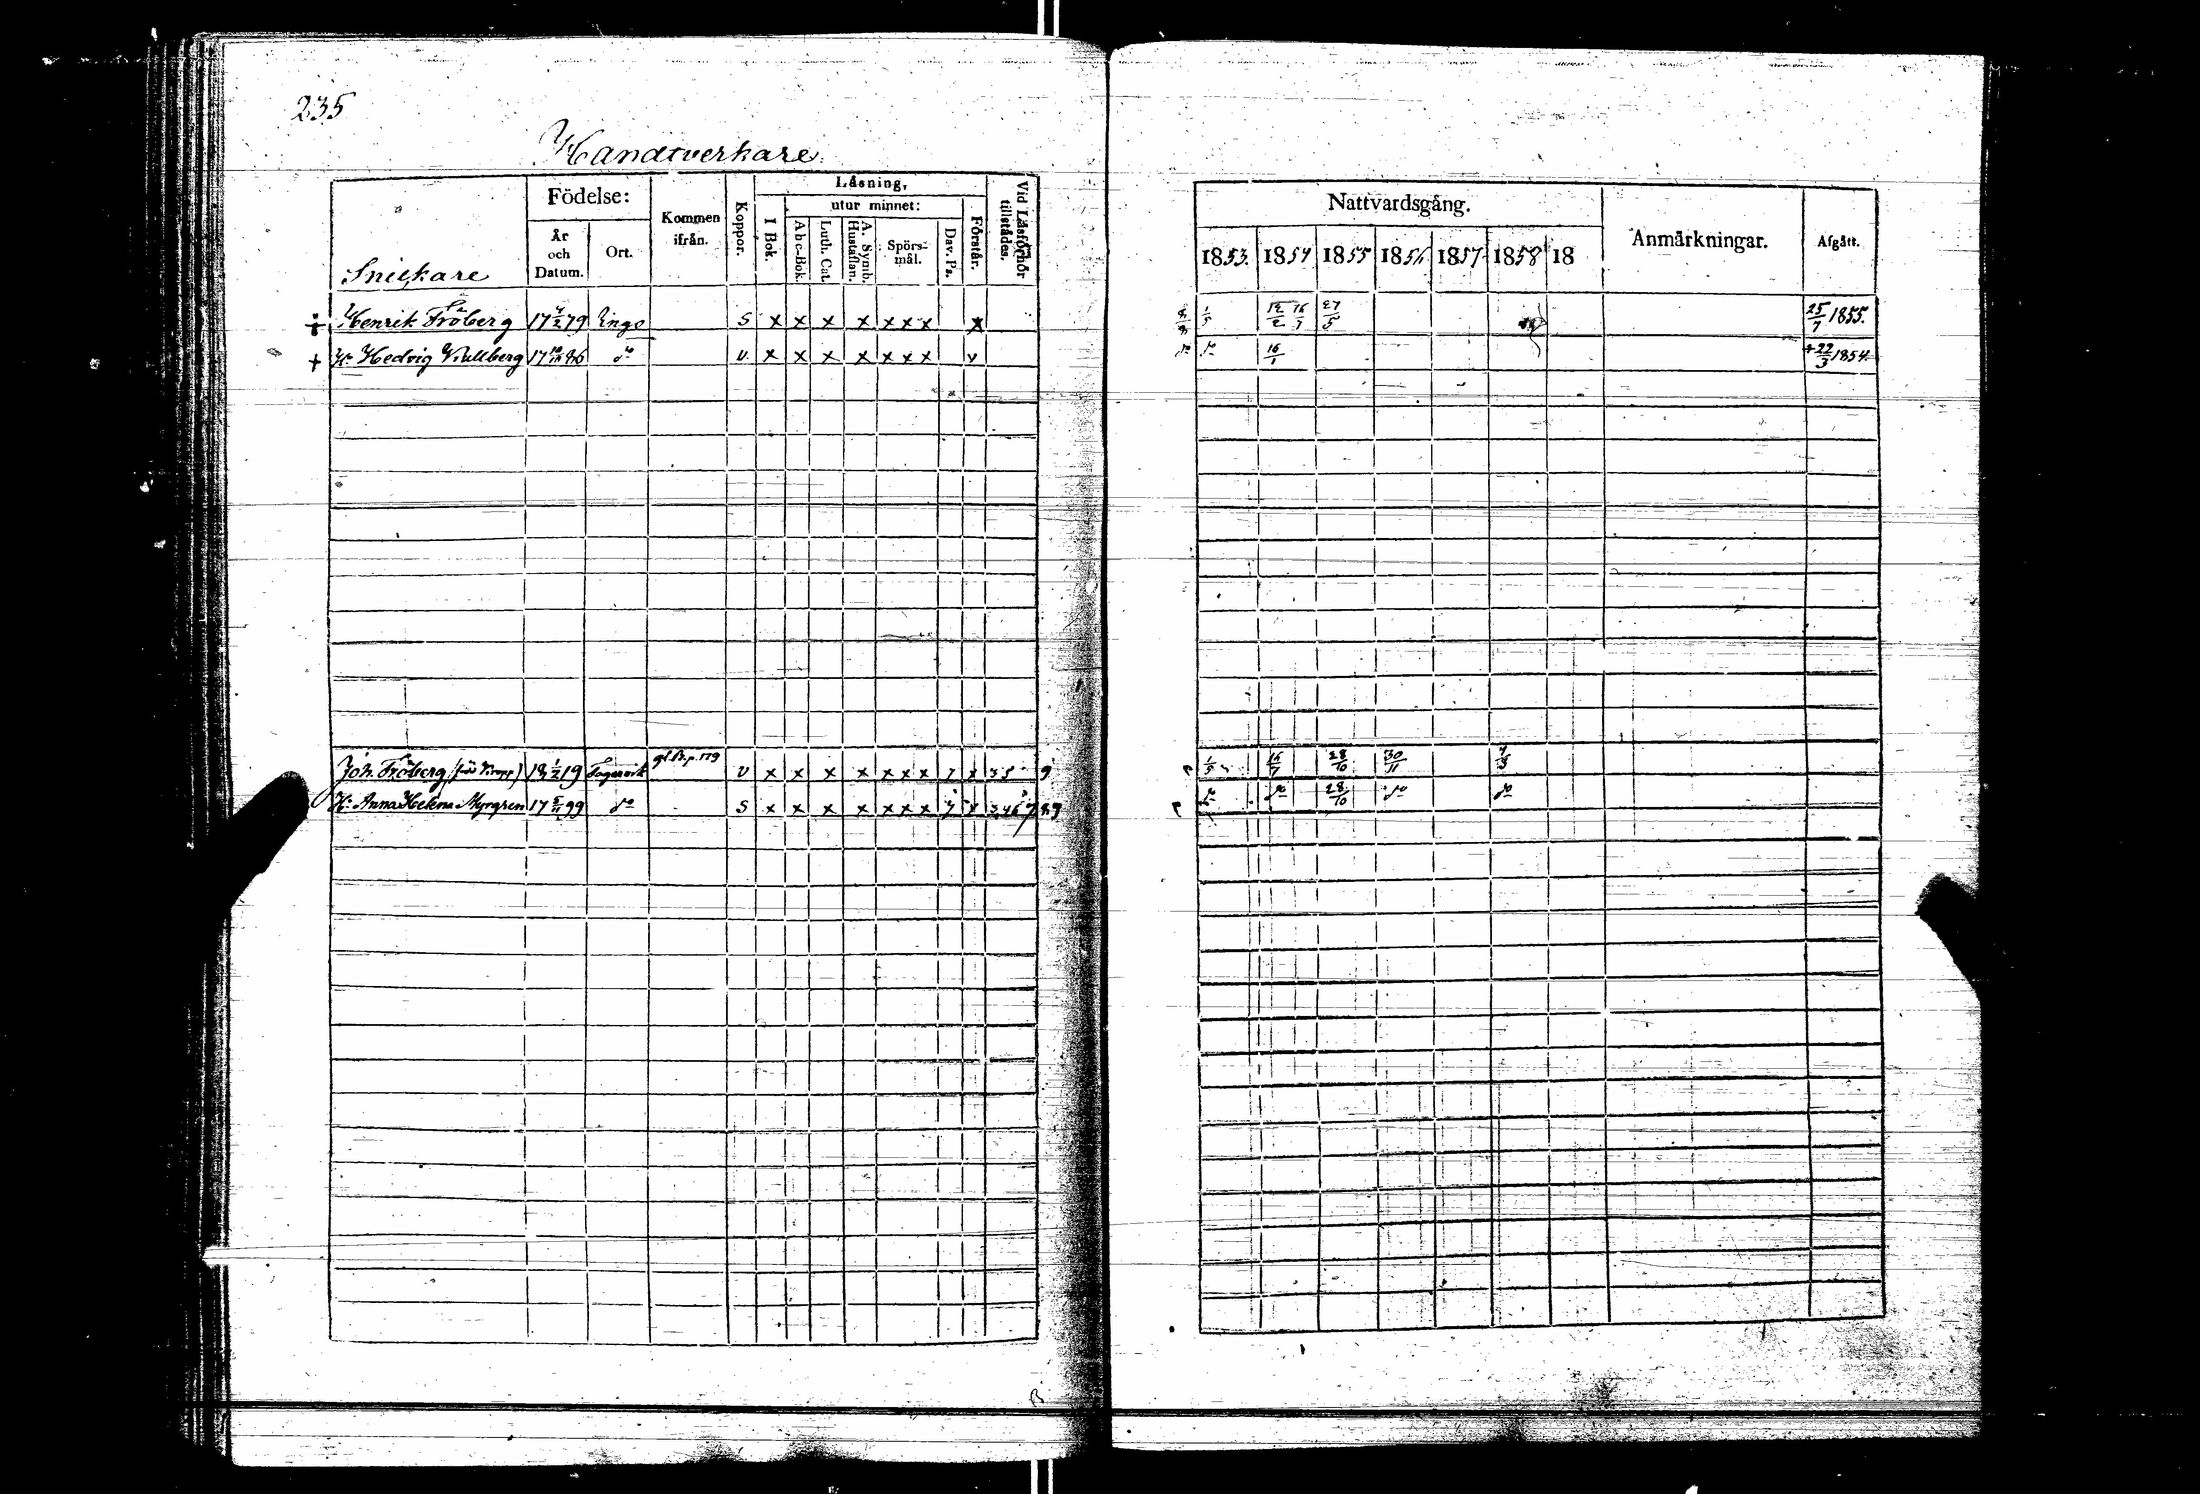 235
Handtverkare
Snickare
Födelse:
År och Datum.
Ort.
Kommen ifrån.
Koppor.
Läsning,
I Bok.
utur minnet:
Abc-Bok.
Luth. Cat.
A. Symb. Hustaflan.
Spörsmål.
Dav. Ps.
Förstår.
Vid Läsförhör tillstådes.
Nattvardsgång.
1853. 1854 1855 1856 1857 1858 18
Anmärkningar.
Afgått.
Henrik Fröberg 17 4/2 79 Ingo S x x x x x x x x 1/5 12/2 16/7 27/5 25/7 1855.
H. Hedvig Kullberg 17 86 do v. x x x x x x x v do 16/1 + 22/3 1854
Joh. Fröberg 18 1/2 19 Fagervik gl. B. p. 179 v x x x x x x x 7 x 3 5 9 1/5 16/7 28/10 30/11 4/5
H. Anna Helena Myrgren 17 99 do S x x x x x x x 7 x 3 4 6 7 8 9 do do 28/10 do do